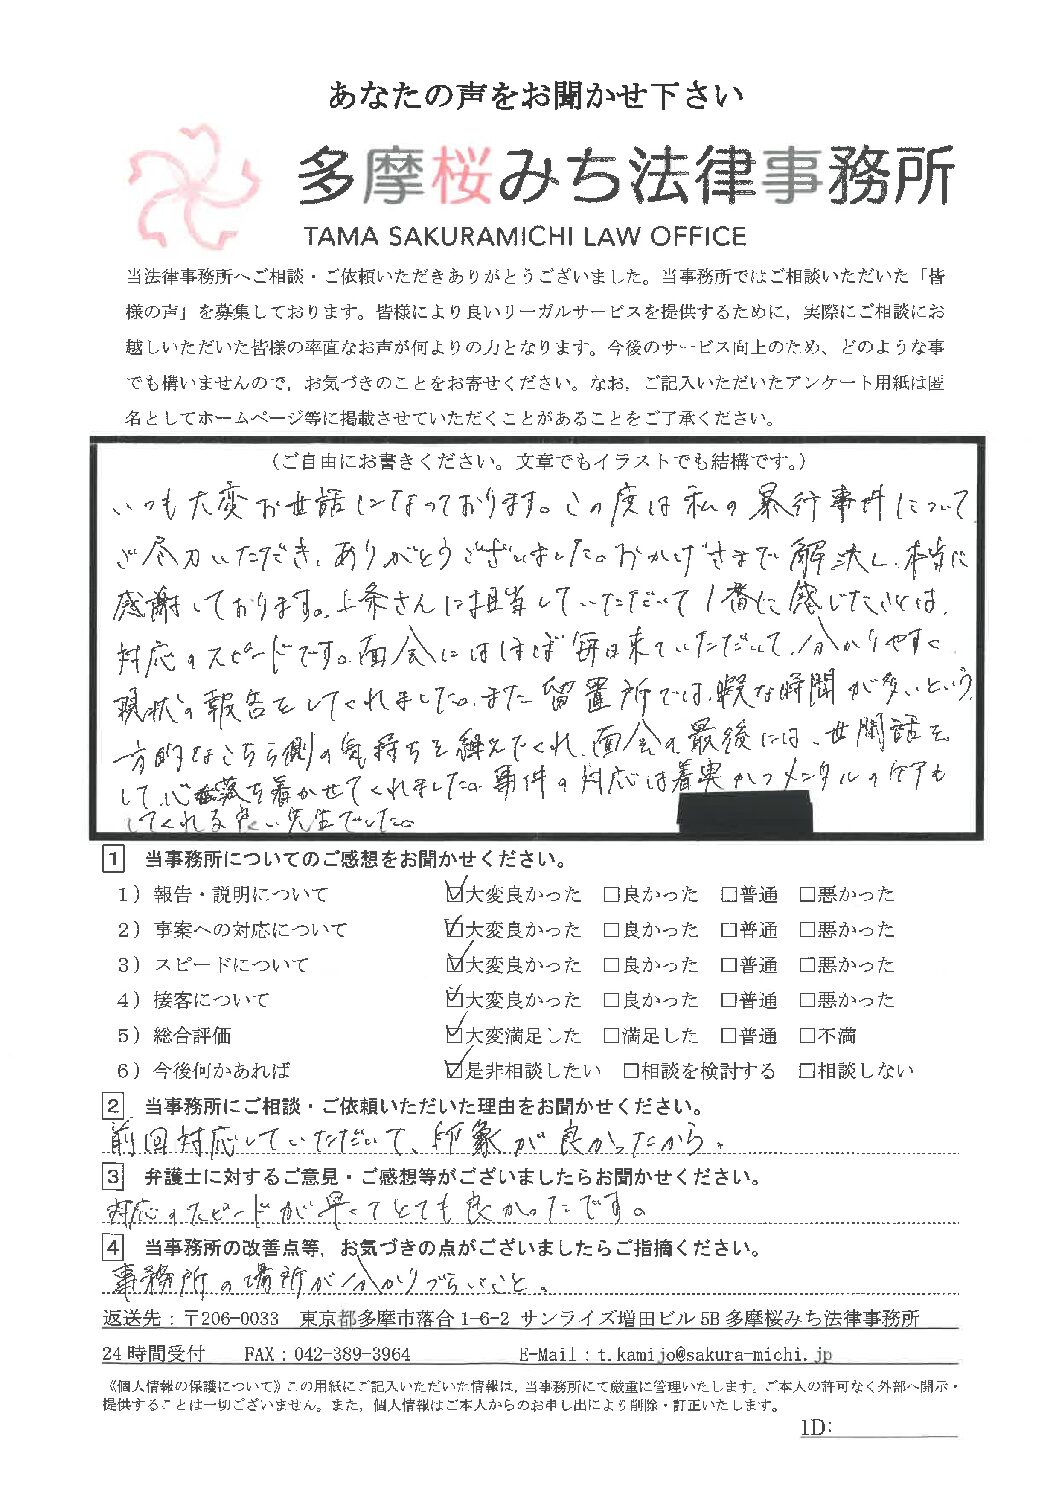 あなたの声をお聞かせ下さい
多摩桜みち法律事務所
TAMA SAKURAMICHI LAW OFFICE
当法律事務所へご相談・ご依頼いただきありがとうございました。当事務所ではご相談いただいた「皆
様の声」を募集しております。皆様により良いリーガルサービスを提供するために，実際にご相談にお
越しいただいた皆様の率直なお声が何よりの力となります。今後のサービス向上のため、どのような事
でも構いませんので，お気づきのことをお寄せください。なお，ご記入いただいたアンケート用紙は匿
名としてホームページ等に掲載させていただくことがあることをご了承ください。
（ご自由にお書きください。文章でもイラストでも結構です。）
いつも大変お世話になっております。この度は私の暴行事件について
ご尽力いただき、ありがとうございました。おかげさまで解決し、本当に
感謝しております。上条さんに担当していただいて1番に感じたことは、
対応のスピードです。面会にはほぼ毎日来ていただいて、分かりやすく
現状の報告をしてくれました。また留置所では、暇な時間が多いという
方的なこちら側の気持ちを組んでくれ、面会の最後には、世間話を
して心を落ち着かせてくれました。事件の対応は着実かつメンタルのケアも
してくれる良い先生でした。
1 当事務所についてのご感想をお聞かせください。
1）報告・説明について ☑大変良かった □良かった □普通 □悪かった
2）事案への対応について ☑大変良かった □良かった □普通 □悪かった
3）スピードについて ☑大変良かった □良かった □普通 □悪かった
4）接客について ☑大変良かった □良かった □普通 □悪かった
5）総合評価 ☑大変満足した □満足した □普通 □不満
6）今後何かあれば ☑是非相談したい □相談を検討する □相談しない
2 当事務所にご相談・ご依頼いただいた理由をお聞かせください。
前回対応していただいて、印象が良かったから。
3 弁護士に対するご意見・ご感想等がございましたらお聞かせください。
対応のスピードが早くてとても良かったです。
4 当事務所の改善点等，お気づきの点がございましたらご指摘ください。
事務所の場所が分かりづらいこと。
返送先：〒206-0033 東京都多摩市落合1-6-2 サンライズ増田ビル5B多摩桜みち法律事務所
24時間受付 FAX：042-389-3964 E-Mail：t.kamijo@sakura-michi.jp
《個人情報の保護について》この用紙にご記入いただいた情報は，当事務所にて厳重に管理いたします。ご本人の許可なく外部へ開示・
提供することは一切ございません。また，個人情報はご本人からのお申し出により削除・訂正いたします。
ID: